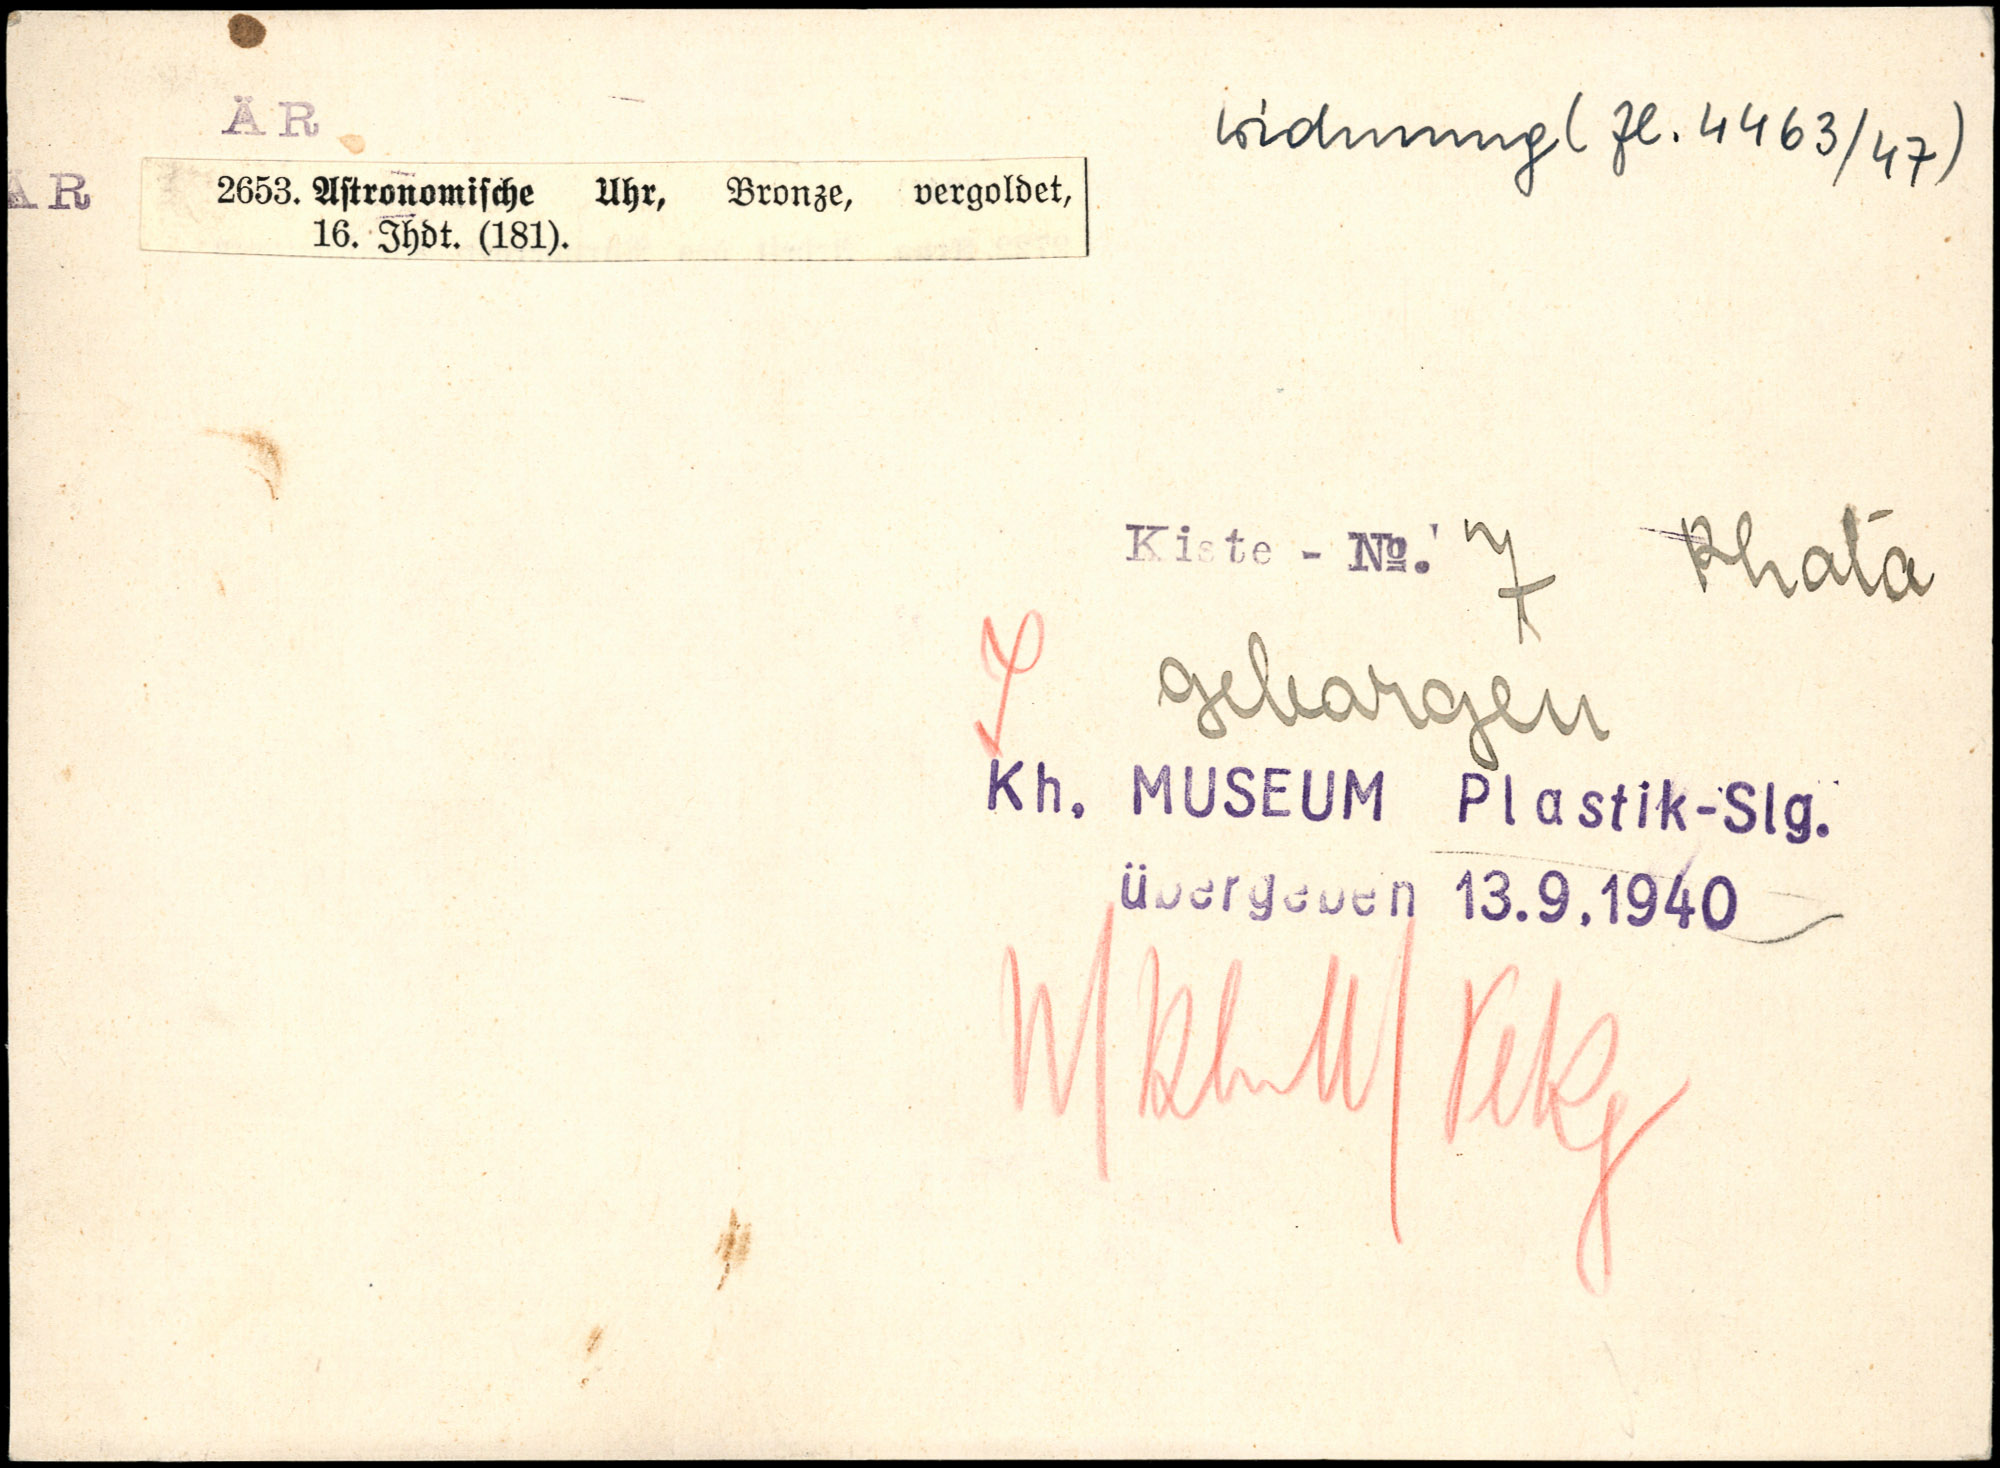 ÄR
Widmung (Zl. 4463/47)
ÄR
2653. Astronomische Uhr, Bronze, vergoldet,
16. Jhdt. (181).
Kiste - No. 7
geborgen
Kh. MUSEUM Plastik-Slg.
übergeben 13.9.1940
W/KhM/